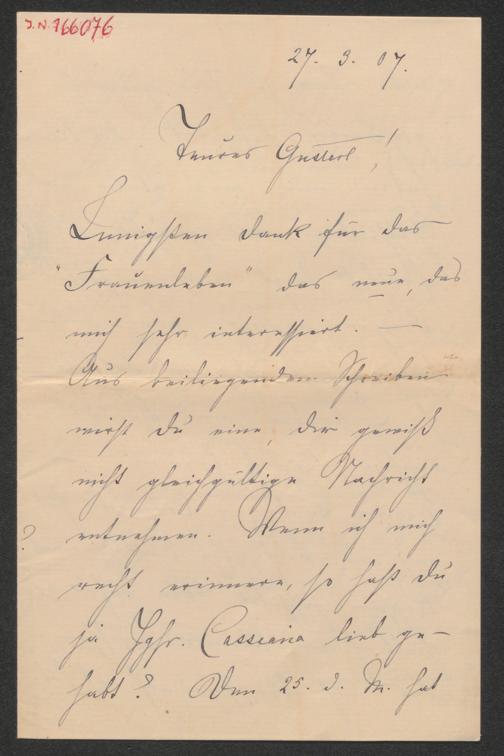 J.N. 166076
27. 3. 07.
Teures Gusterl!
Innigsten Dank für das
"Frauenleben" das neue, das
mich sehr interessiert. —
Aus beiliegendem Schreiben
wirst Du eine, Dir gewiß
nicht gleichgültige Nachricht
entnehmen. Wenn ich mich
recht erinnere, so hast Du
ja Jghr. Casseana lieb ge-
habt? Den 25. d. M. hat